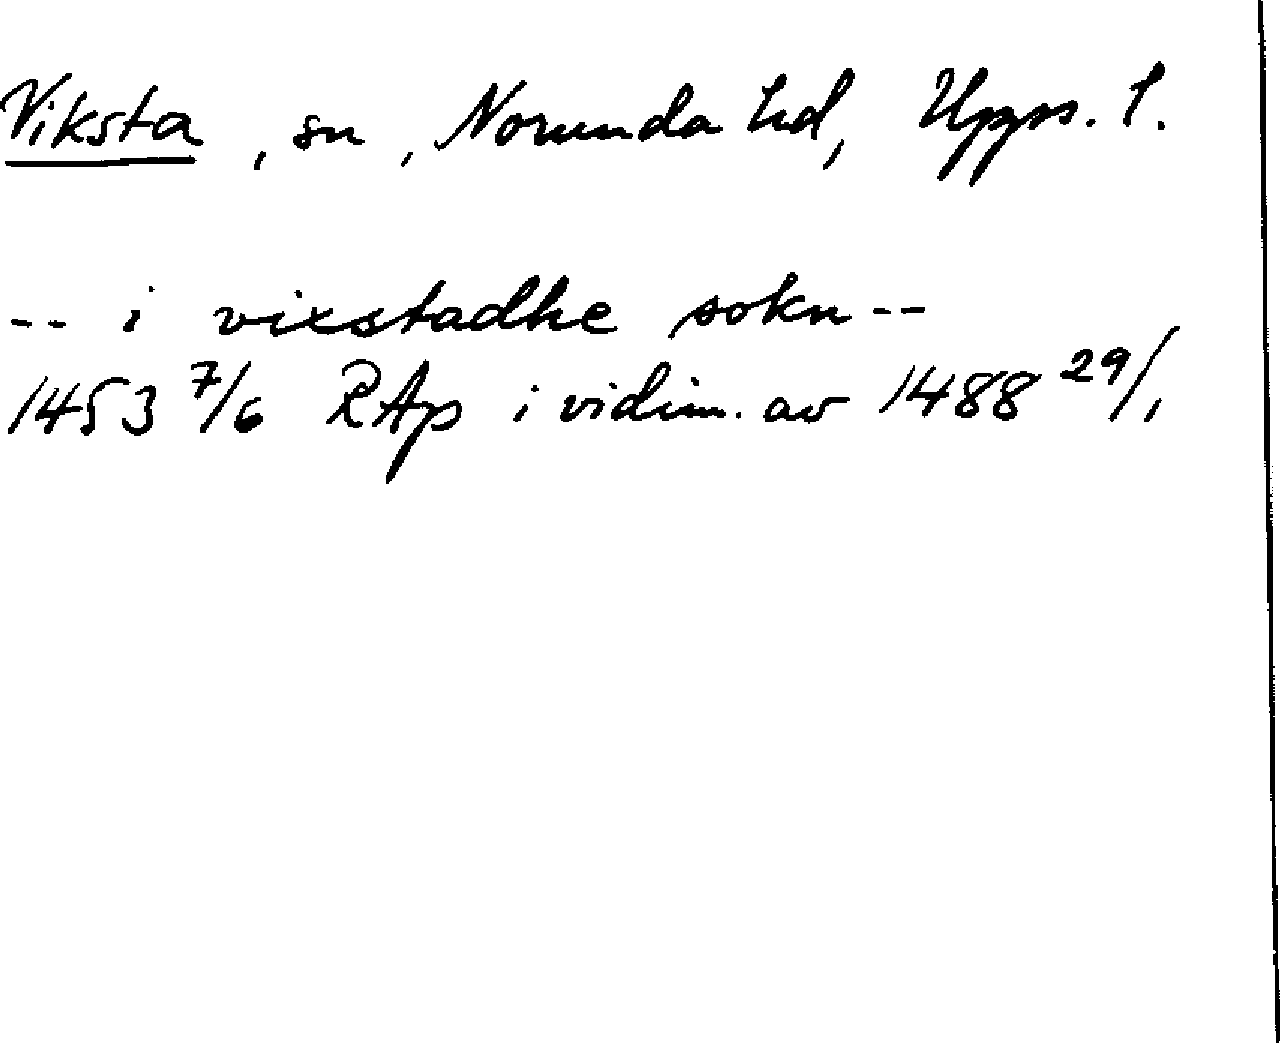 Viksta, sn, Norunda hd, Upps. l.
-- i vixstadhe sokn --
1453 7/6 RAp i vidim. av 1488 29/1